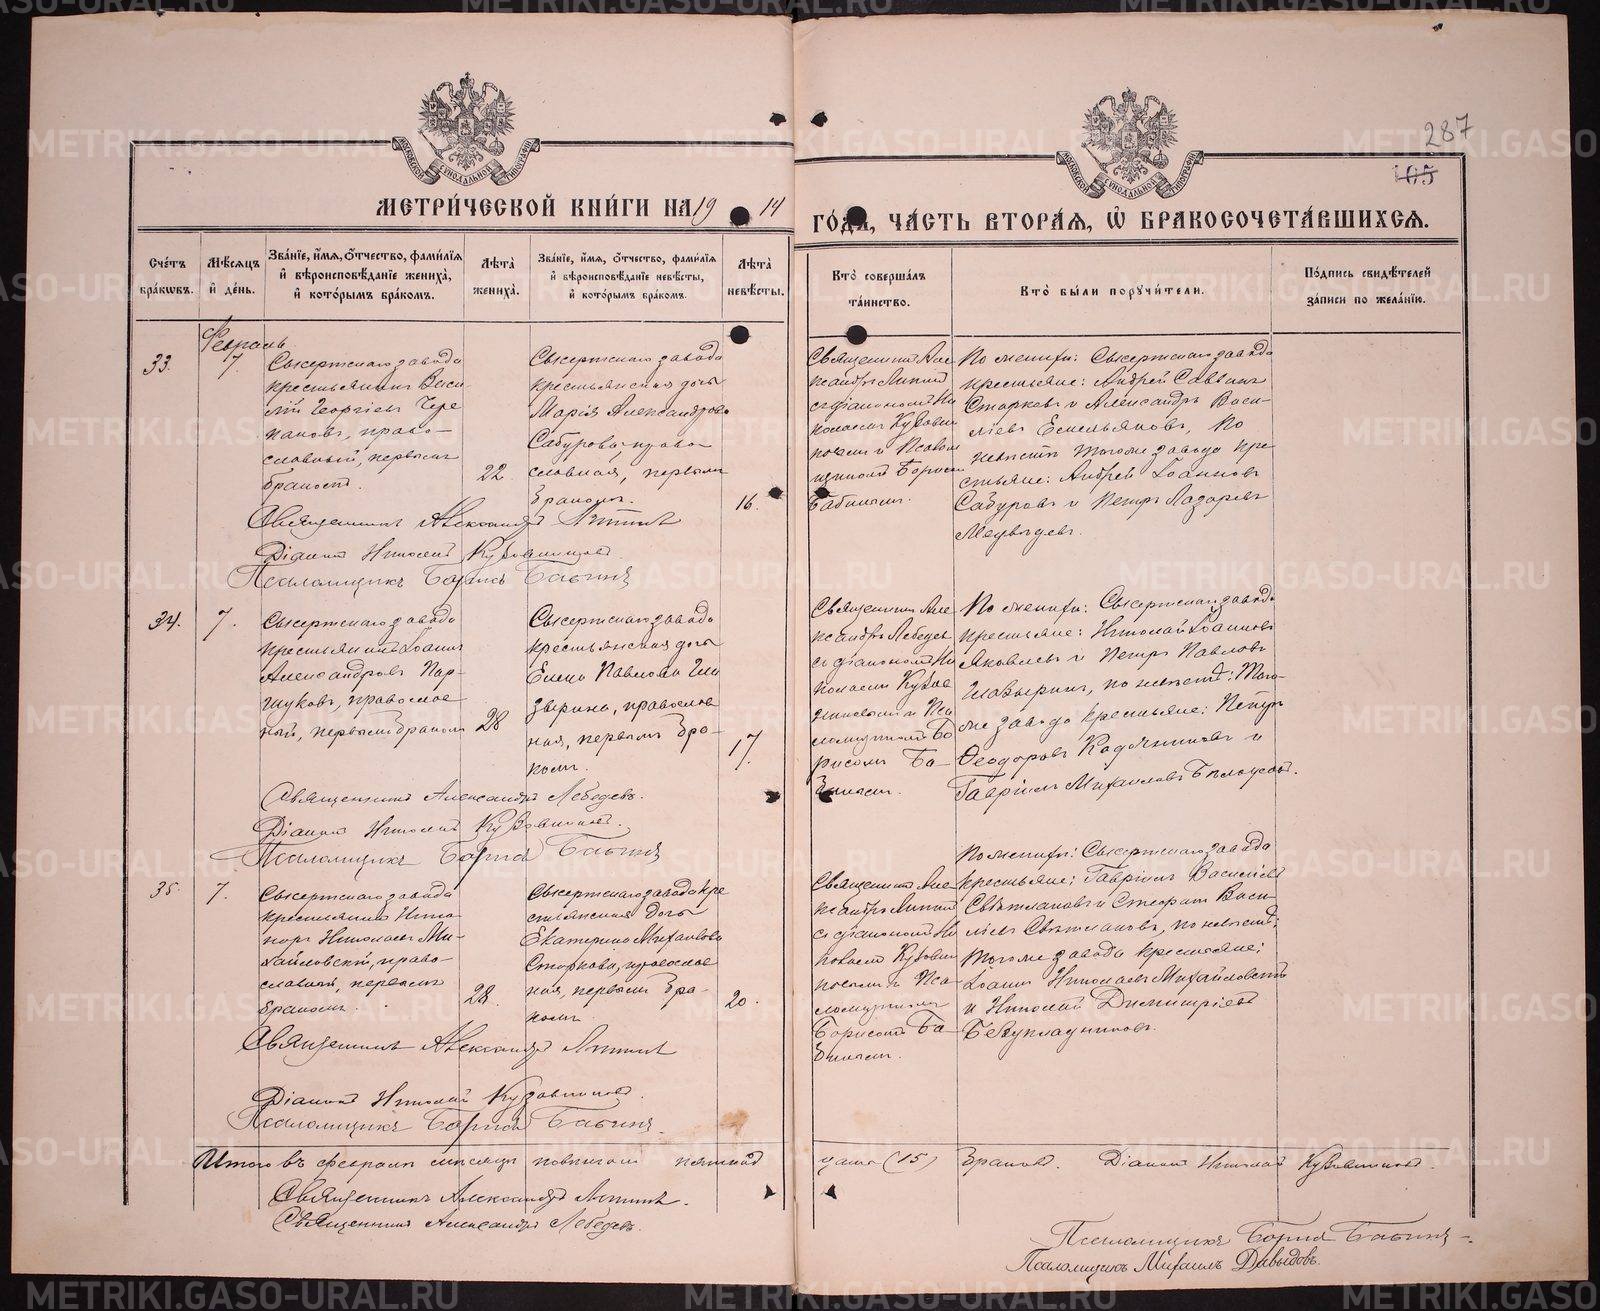 287
105
МЕТРИ́ЧЕСКОЙ КНИ́ГИ НА 1914
ГО́ДА, ЧА́СТЬ ВТОРА́Я, Ѡ БРАКОСОЧЕТА́ВШИХСЯ.
Сче́тъ бра́кѡвъ.
Мѣ́сяцъ и҆ де́нь.
Зва́нїе, и҆́мя, ѻ҆́тчество, фами́лїя и҆ вѣроисповѣ́данїе жениха̀, и҆ кото́рымъ бра́комъ.
Лѣ́та жениха̀.
Зва́нїе, и҆́мя, ѻ҆́тчество, фами́лїя и҆ вѣроисповѣ́данїе невѣ́сты, и҆ кото́рымъ бра́комъ.
Лѣ́та невѣ́сты.
Кто̀ соверша́лъ та́инство.
Кто̀ бы́ли порꙋчи́тели.
По́дпись свидѣ́телей за́писи по жела́нїю.
Февраль.
33.
7.
Сысертскаго завода
крестьянинъ Васи
лій Георгіевъ Чере
пановъ, право-
славный, первымъ
бракомъ.
22.
Сысертскаго завода
крестьянская дочь
Марія Александрова
Сабурова, право
славная, первымъ
бракомъ.
16.
Священникъ Але
ксандръ
съ діакономъ Ни
колаемъ Кузовни
ковымъ и Псалом
щикомъ Борисом
Бабинымъ.
По женихѣ: Сысертскаго завода
крестьяне: Андрей Саввинъ
Старковъ и Александръ Васи-
ліевъ Емельяновъ, По
невѣстѣ тогоже завода кре-
стьяне: Андрей Іоанновъ
Сабуровъ и Петръ Лазаревъ
Медвѣдевъ.
Священникъ Александръ
Діаконъ Николай Кузовниковъ.
Псаломщикъ Борисъ Бабинъ
34.
7.
Сысертскаго завода
крестьянинъ Іоаннъ
Александровъ Пар-
шуковъ, православ
ный, первымъ бракомъ
28
Сысертскаго завода
крестьянская дочь
Елена Павлова Ша
зырина, православ
ная, первымъ бра-
комъ.
17.
Священникъ Але
ксандръ Лебедевъ
съ діакономъ Ни
колаемъ Кузов
никовымъ и Пса
ломщикомъ Бо
рисомъ Ба-
бинымъ.
По женихѣ: Сысертскаго завода
крестьяне: Николай Іоанновъ
Яковлевъ и Петръ Павловъ
по невѣстѣ: того-
же завода крестьяне: Петръ
Ѳеодоровъ Кадочниковъ и
Гавріилъ Михаиловъ Бѣлоусовъ.
Священникъ Александръ Лебедевъ.
Діаконъ Николай Кузовниковъ.
Псаломщикъ Борисъ Бабинъ
35.
7.
Сысертскаго завода
крестьянинъ Ника-
норъ Николаевъ Ми-
хайловскій, право-
славный, первымъ
бракомъ.
28.
Сысертскаго завода кре
стьянская дочь
Екатерина Михаилова
Старкова, православ
ная, первымъ бра-
комъ.
20.
Священникъ Але
ксандръ
съ діакономъ Ни
колаемъ Кузовни
ковымъ и Пса-
ломщикомъ
Борисомъ Ба
бинымъ.
По женихѣ: Сысертскаго завода
крестьяне: Гавріилъ Васильевъ
Свѣтлаковъ и Стефанъ Васи-
ліевъ Свѣтлаковъ, по невѣстѣ:
тогоже завода крестьяне:
Іоаннъ Николаевъ Михайловскій
и Николай Димитріевъ
Безукладниковъ.
Священникъ Александръ
Діаконъ Николай Кузовниковъ.
Псаломщикъ Борисъ Бабинъ.
Итого въ февралѣ мѣсяцѣ повѣнчано пятнад
цать (15) браковъ. Діаконъ Николай Кузовниковъ.
Священникъ Александръ
Священникъ Александръ Лебедевъ.
Псаломщикъ Борисъ Бабинъ
Псаломщикъ Михаилъ Давыдовъ.
METRIKI.GASO-URAL.RU